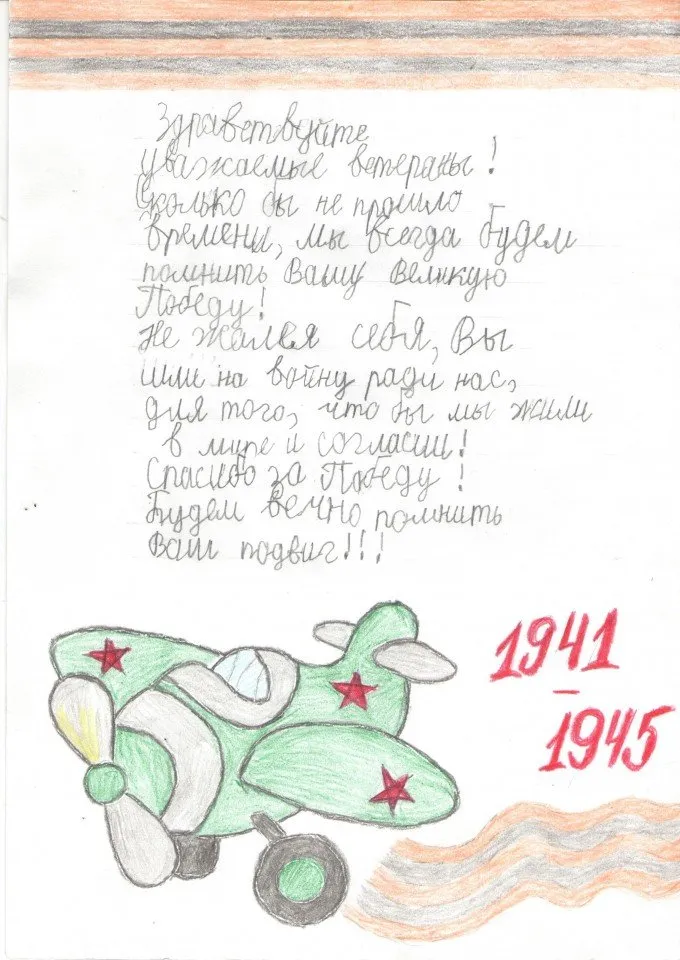 Здравствуйте
уважаемые ветераны!
Сколько бы не прошло
времени, мы всегда будем
помнить Вашу Великую
Победу!
Не жалея себя, Вы
шли на войну ради нас,
для того, что бы мы жили
в мире и согласии!
Спасибо за Победу!
Будем вечно помнить
Ваш подвиг!!!
1941
–
1945